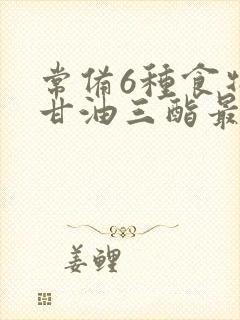 常備6種食
甘油三酯最
姜鲤